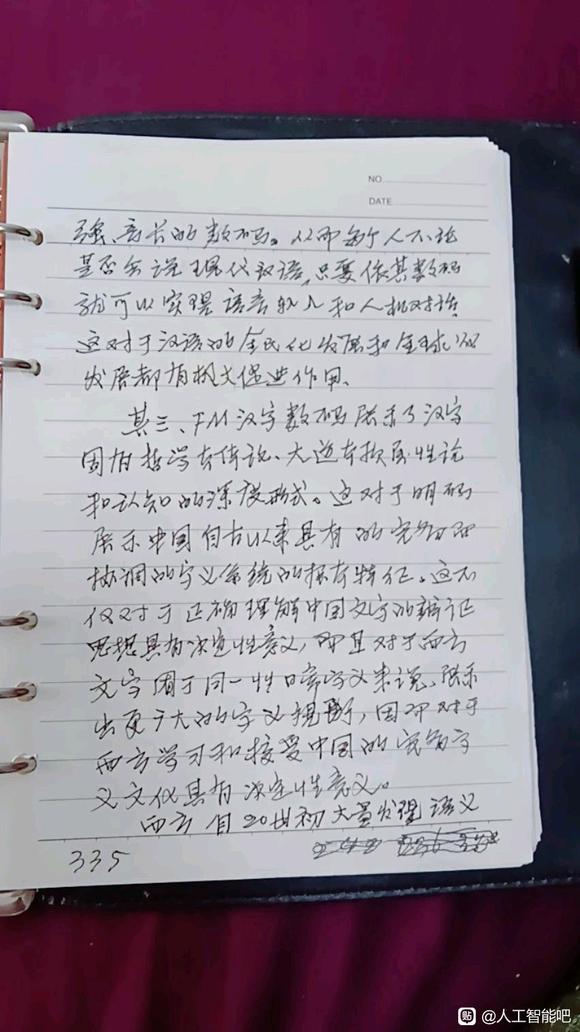 NO
DATE
强、音长的数码。从而每个人不论
是否会说现代汉语,只要依其数码
就可以实现语言输入和人机对话,
这对于汉语的全民化发展和全球化
发展都有极大促进作用。
其三、FM汉字数码展示了汉字
固有哲学本体论、大道本报属性论
和认知的深度形式。这对于明码
展示中国自古以来具有的完备而
协调的字义系统的根本特征。这不
仅对于正确理解中国文字的辩证
思想具有决定性意义,即其对于西方
文字囿于同一性日常字义来说,展示
出更广大的字义视野,因而对于
西方学习和接受中国的完备字
义文化具有决定性意义。
西方自20世初大量发现语义
335
@人工智能吧